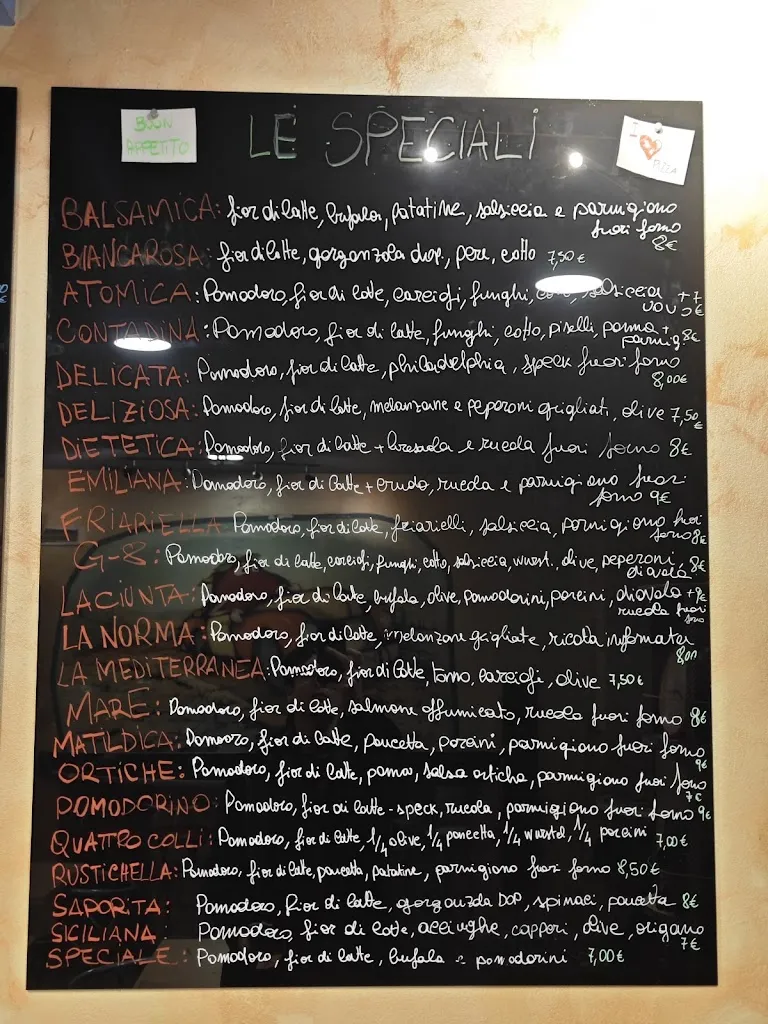 BUON
APPETITO
LE SPECIALI
I
PIZZA
BALSAMICA: fior di latte, bufala, patatine, salsiccia e parmigiano
fuori forno
8€
BIANCAROSA: fior di latte, gorgonzola dop., pere, cotto 7,50€
ATOMICA: Pomodoro, fior di latte, carciofi, funghi, salsiccia +
uovo
CONTADINA: Pomodoro, fior di latte, funghi, cotto, piselli, panna + 8€
parmig
DELICATA: Pomodoro, fior di latte, philadelphia, speck fuori forno
8,00€
DELIZIOSA: Pomodoro, fior di latte, melanzane e peperoni grigliati, olive 7,50
€
DIETETICA: Pomodoro, fior di latte + bresaola e rucola fuori forno 8€
EMILIANA: Pomodoro, fior di latte + crudo, rucola e parmigiano fuori
forno 9€
FRIARIELLA Pomodoro, fior di latte, friarielli, salsiccia, parmigiano fuori
forno 8€
G-8: Pomodoro, fior di latte, carciofi, funghi, cotto, salsiccia, wurst., olive, peperoni, 8€
diavola
LACIUNTA: Pomodoro, fior di latte, bufala, olive, pomodorini, porcini, diavola + 9€
rucola fuori
forno
LA NORMA: Pomodoro, fior di latte, melanzane grigliate, ricotta infornata
8,00
LA MEDITERRANEA: Pomodoro, fior di latte, tonno, carciofi, olive 7,50€
MARE: Pomodoro, fior di latte, salmone affumicato, rucola fuori forno 8€
MATILDICA: Pomodoro, fior di latte, pancetta, porcini, parmigiano fuori forno
9€
ORTICHE: Pomodoro, fior di latte, panna, salsa ortiche, parmigiano fuori forno
7€
POMODORINO: Pomodoro, fior di latte - speck, rucola, parmigiano fuori forno 9€
QUATTRO COLLI: Pomodoro, fior di latte, 1/4 olive, 1/4 pancetta, 1/4 wurstel, 1/4 porcini 7,00€
RUSTICHELLA: Pomodoro, fior di latte, pancetta, patatine, parmigiano fuori forno 8,50€
SAPORITA: Pomodoro, fior di latte, gorgonzola DOP, spinaci, pancetta 8€
SICILIANA: Pomodoro, fior di latte, acciughe, capperi, olive, origano
7€
SPECIALE: Pomodoro, fior di latte, bufala e pomodorini 7,00€